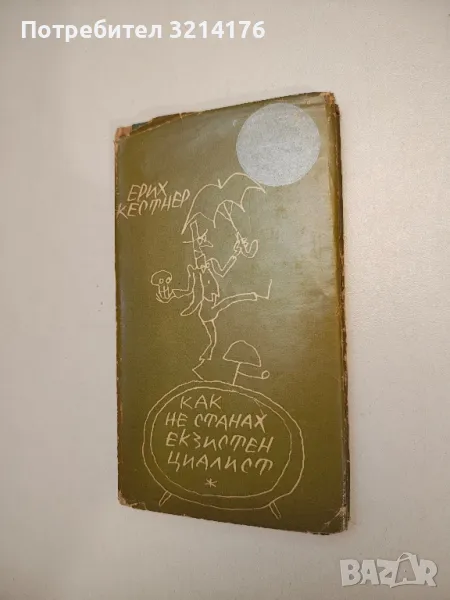 Потребител 3214176
ЕРИХ
КЕСТНЕР
КАК
НЕ СТАНАХ
ЕКЗИСТЕН
ЦИАЛИСТ
*
BAZAR